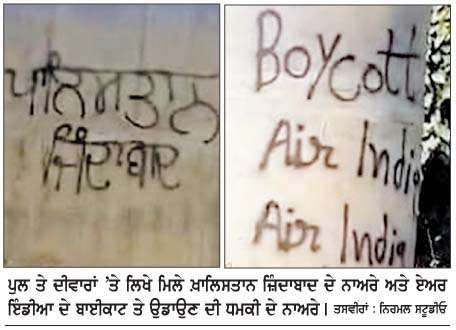 ਖਾਲਿਸਤਾਨ
ਜਿੰਦਾਬਾਦ
Boycott
Air India
Air India
ਪੁਲ ਤੇ ਦੀਵਾਰਾਂ ’ਤੇ ਲਿਖੇ ਮਿਲੇ ਖ਼ਾਲਿਸਤਾਨ ਜ਼ਿੰਦਾਬਾਦ ਦੇ ਨਾਅਰੇ ਅਤੇ ਏਅਰ
ਇੰਡੀਆ ਦੇ ਬਾਈਕਾਟ ਤੇ ਉਡਾਉਣ ਦੀ ਧਮਕੀ ਦੇ ਨਾਅਰੇ। ਤਸਵੀਰਾਂ : ਨਿਰਮਲ ਸਟੂਡੀਓ